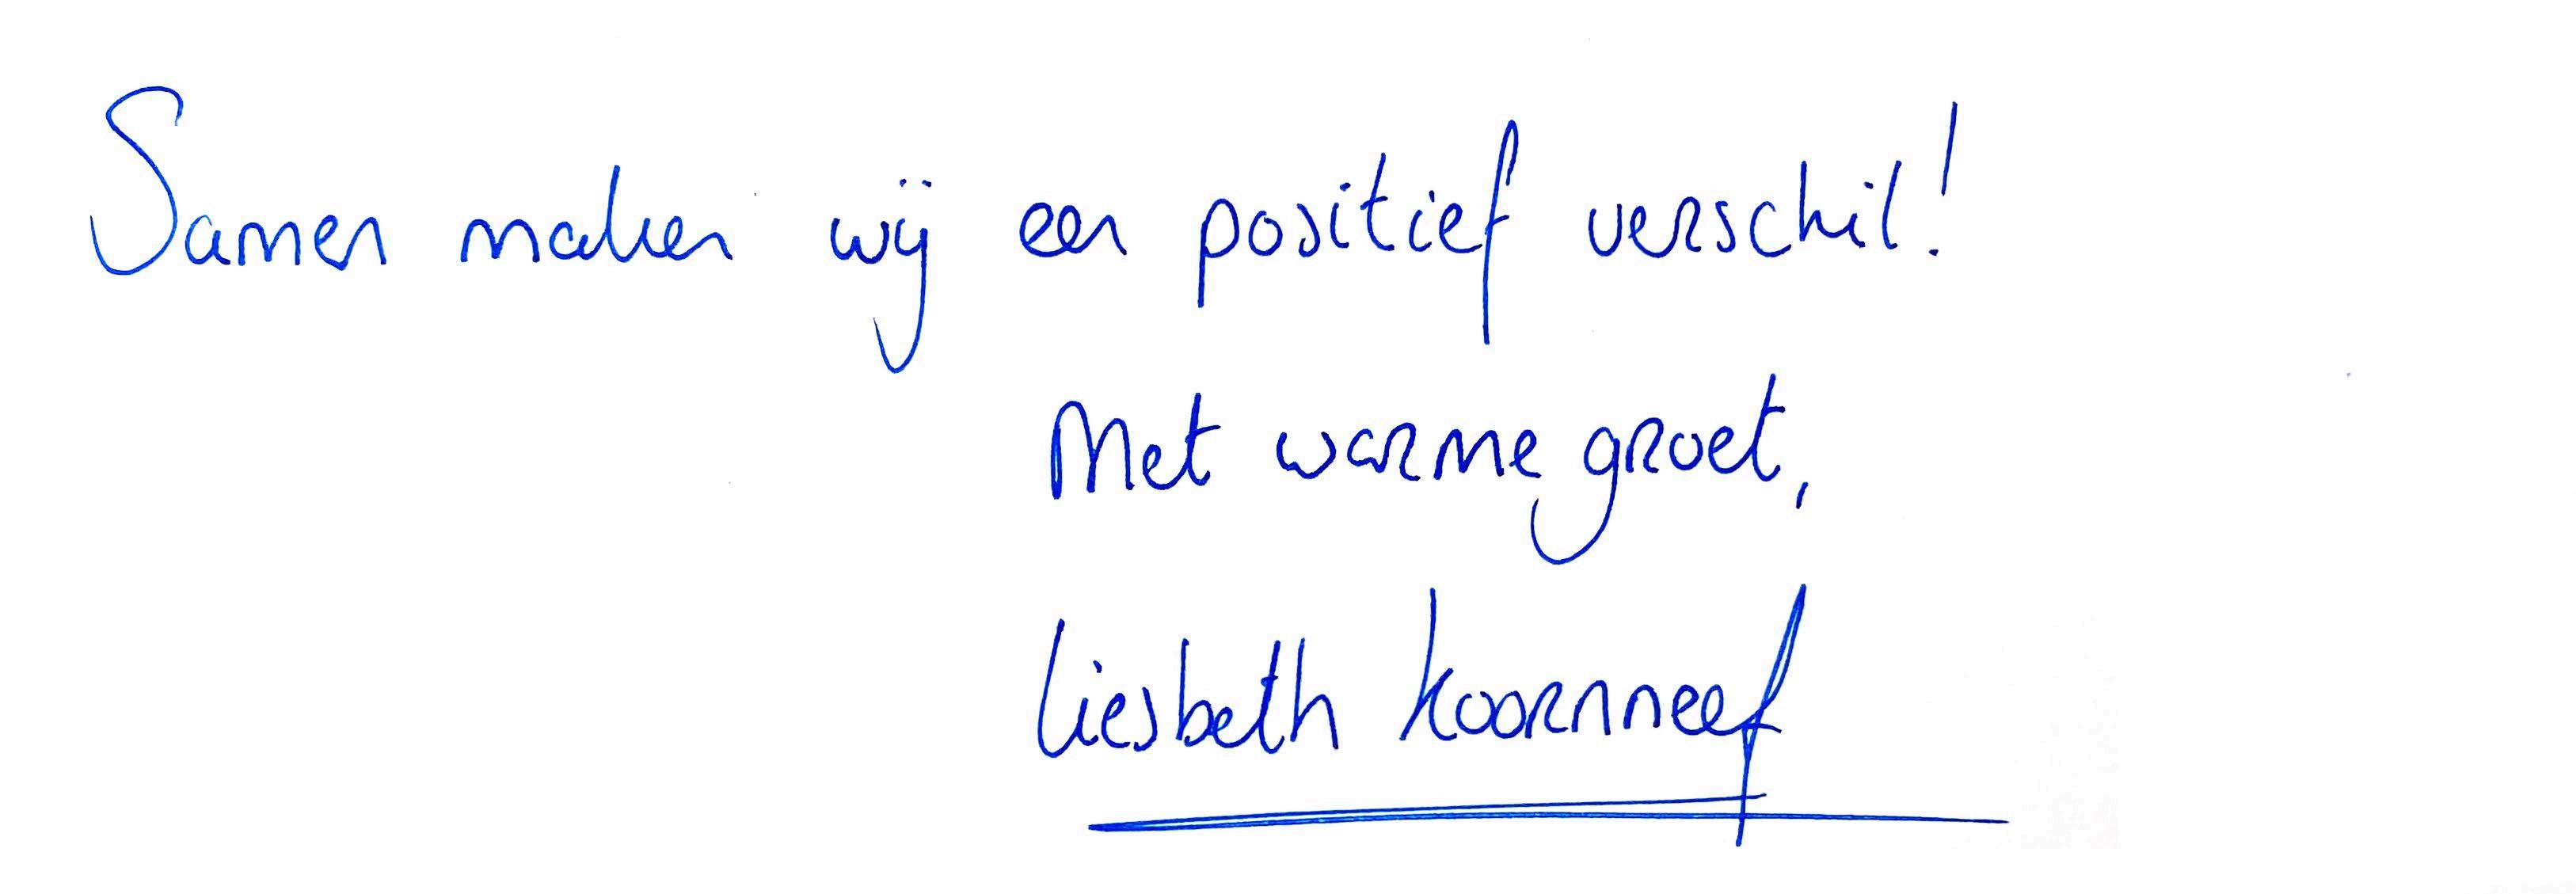 Samen maken wij een positief verschil!
Met warme groet,
Liesbeth Koornneef